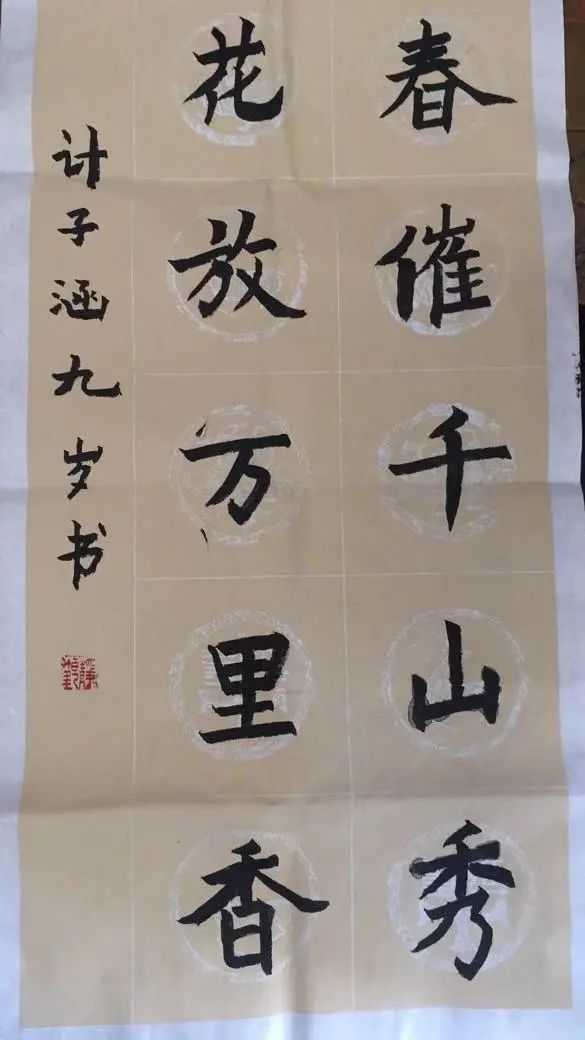 春催千山秀
花放万里香
计子涵九岁书